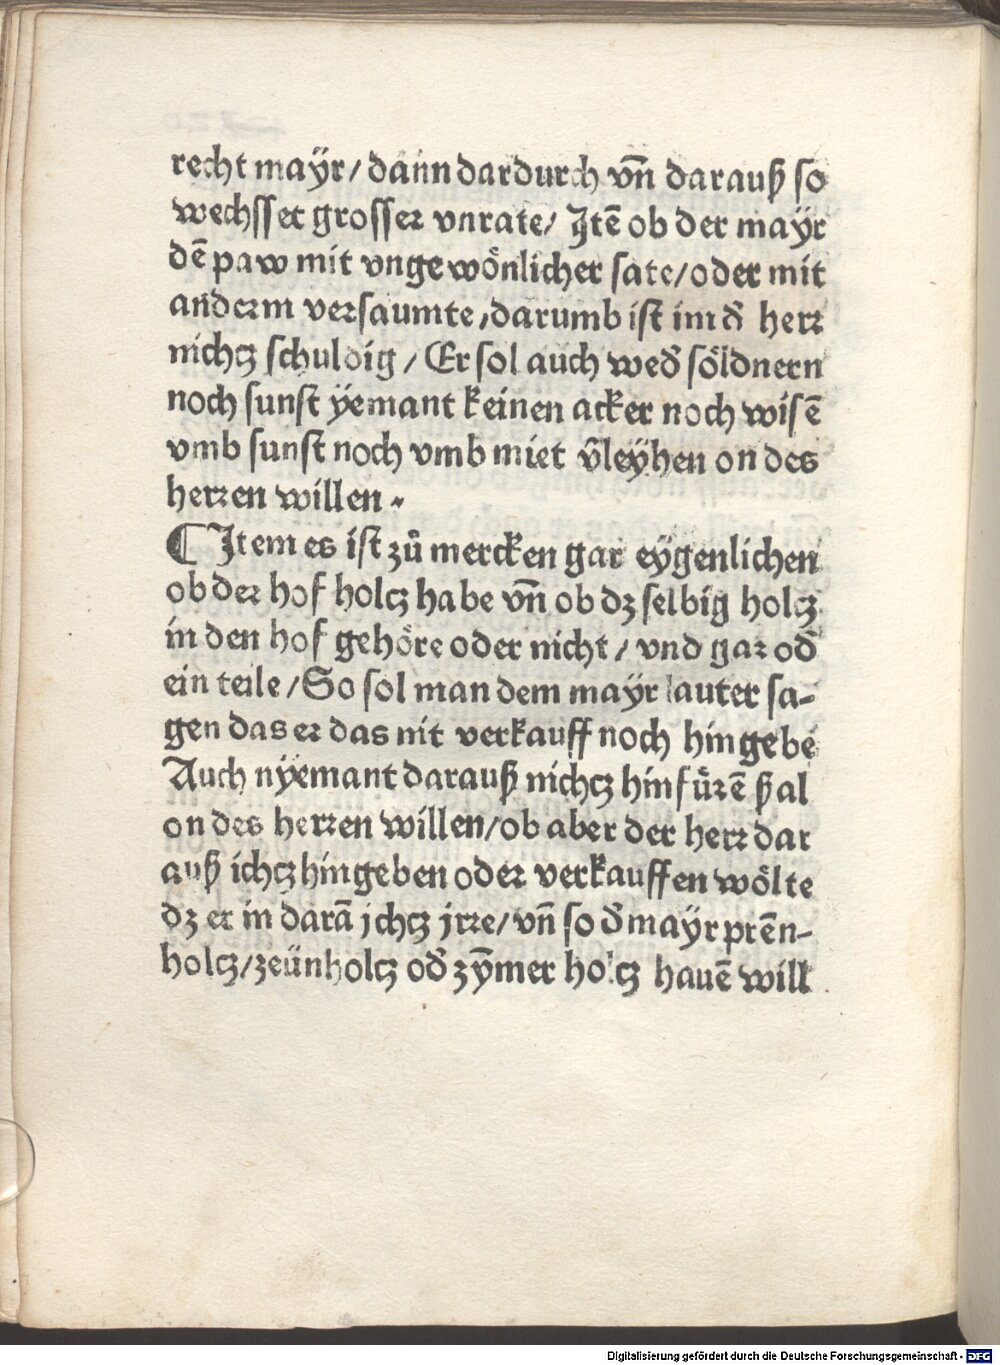 recht mayr/ dann dardurch vn̄ darauß so
wechsset grosser vnrate/ Jtē ob der mayr
dē paw mit vngewoͤnlicher sate/oder mit
anderm versaumte,darumb ist im d̄ herr
nichcz schuldig / Er sol auch wed̄ soͤldnern
noch sunst ÿemant keinen acker noch wisē
vmb sunst noch vmb miet v̄leÿhen on des
herren willen.
¶ Jtem es ist zuͦ mercken gar eÿgenlichen
ob der hof holcz habe vn̄ ob dz selbig holcz
in den hof gehoͤre oder nicht / vnd gar od̄
ein teile /So sol man dem maÿr lauter sa-
gen das er das nit verkauff noch hin gebe
Auch nÿemant darauß nichcz hinfuͤrē ßal
on des herren willen/ob aber der herr dar
auß ichcz hingeben oder verkauffen woͤlte
dz er in darā jchcz jrre/ vn̄ so d̄ maÿr prēn-
holcz/zeünholcz od̄ zȳmer holcz hauē will
Digitalisierung gefördert durch die Deutsche Forschungsgemeinschaft - DFG